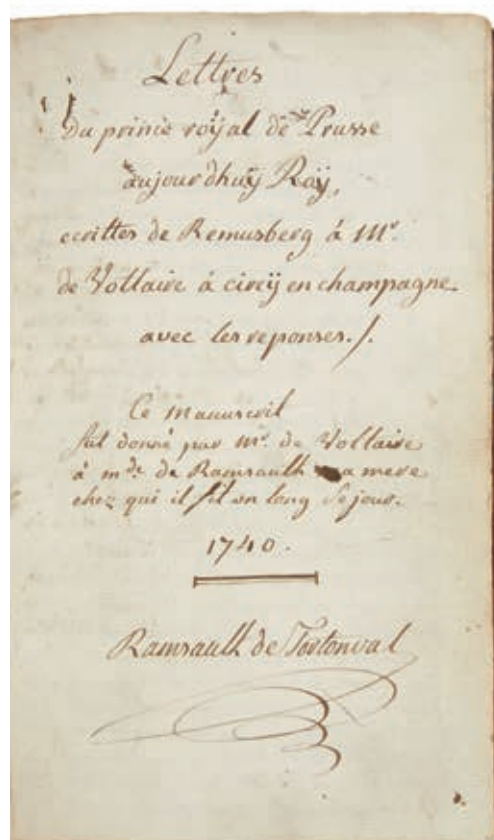 Lettres
du prince roÿal de Prusse
aujourdhuÿ Roÿ,
ecrittes de Remusberg à Mr.
de Voltaire à cireÿ en champagne
avec les reponses./.
Ce manuscrit
fut donné par mr. de Voltaire
à mde. de Ramsault ma mere
chez qui il fit un long Sejour.
1740.
Ramsault de Tortonval